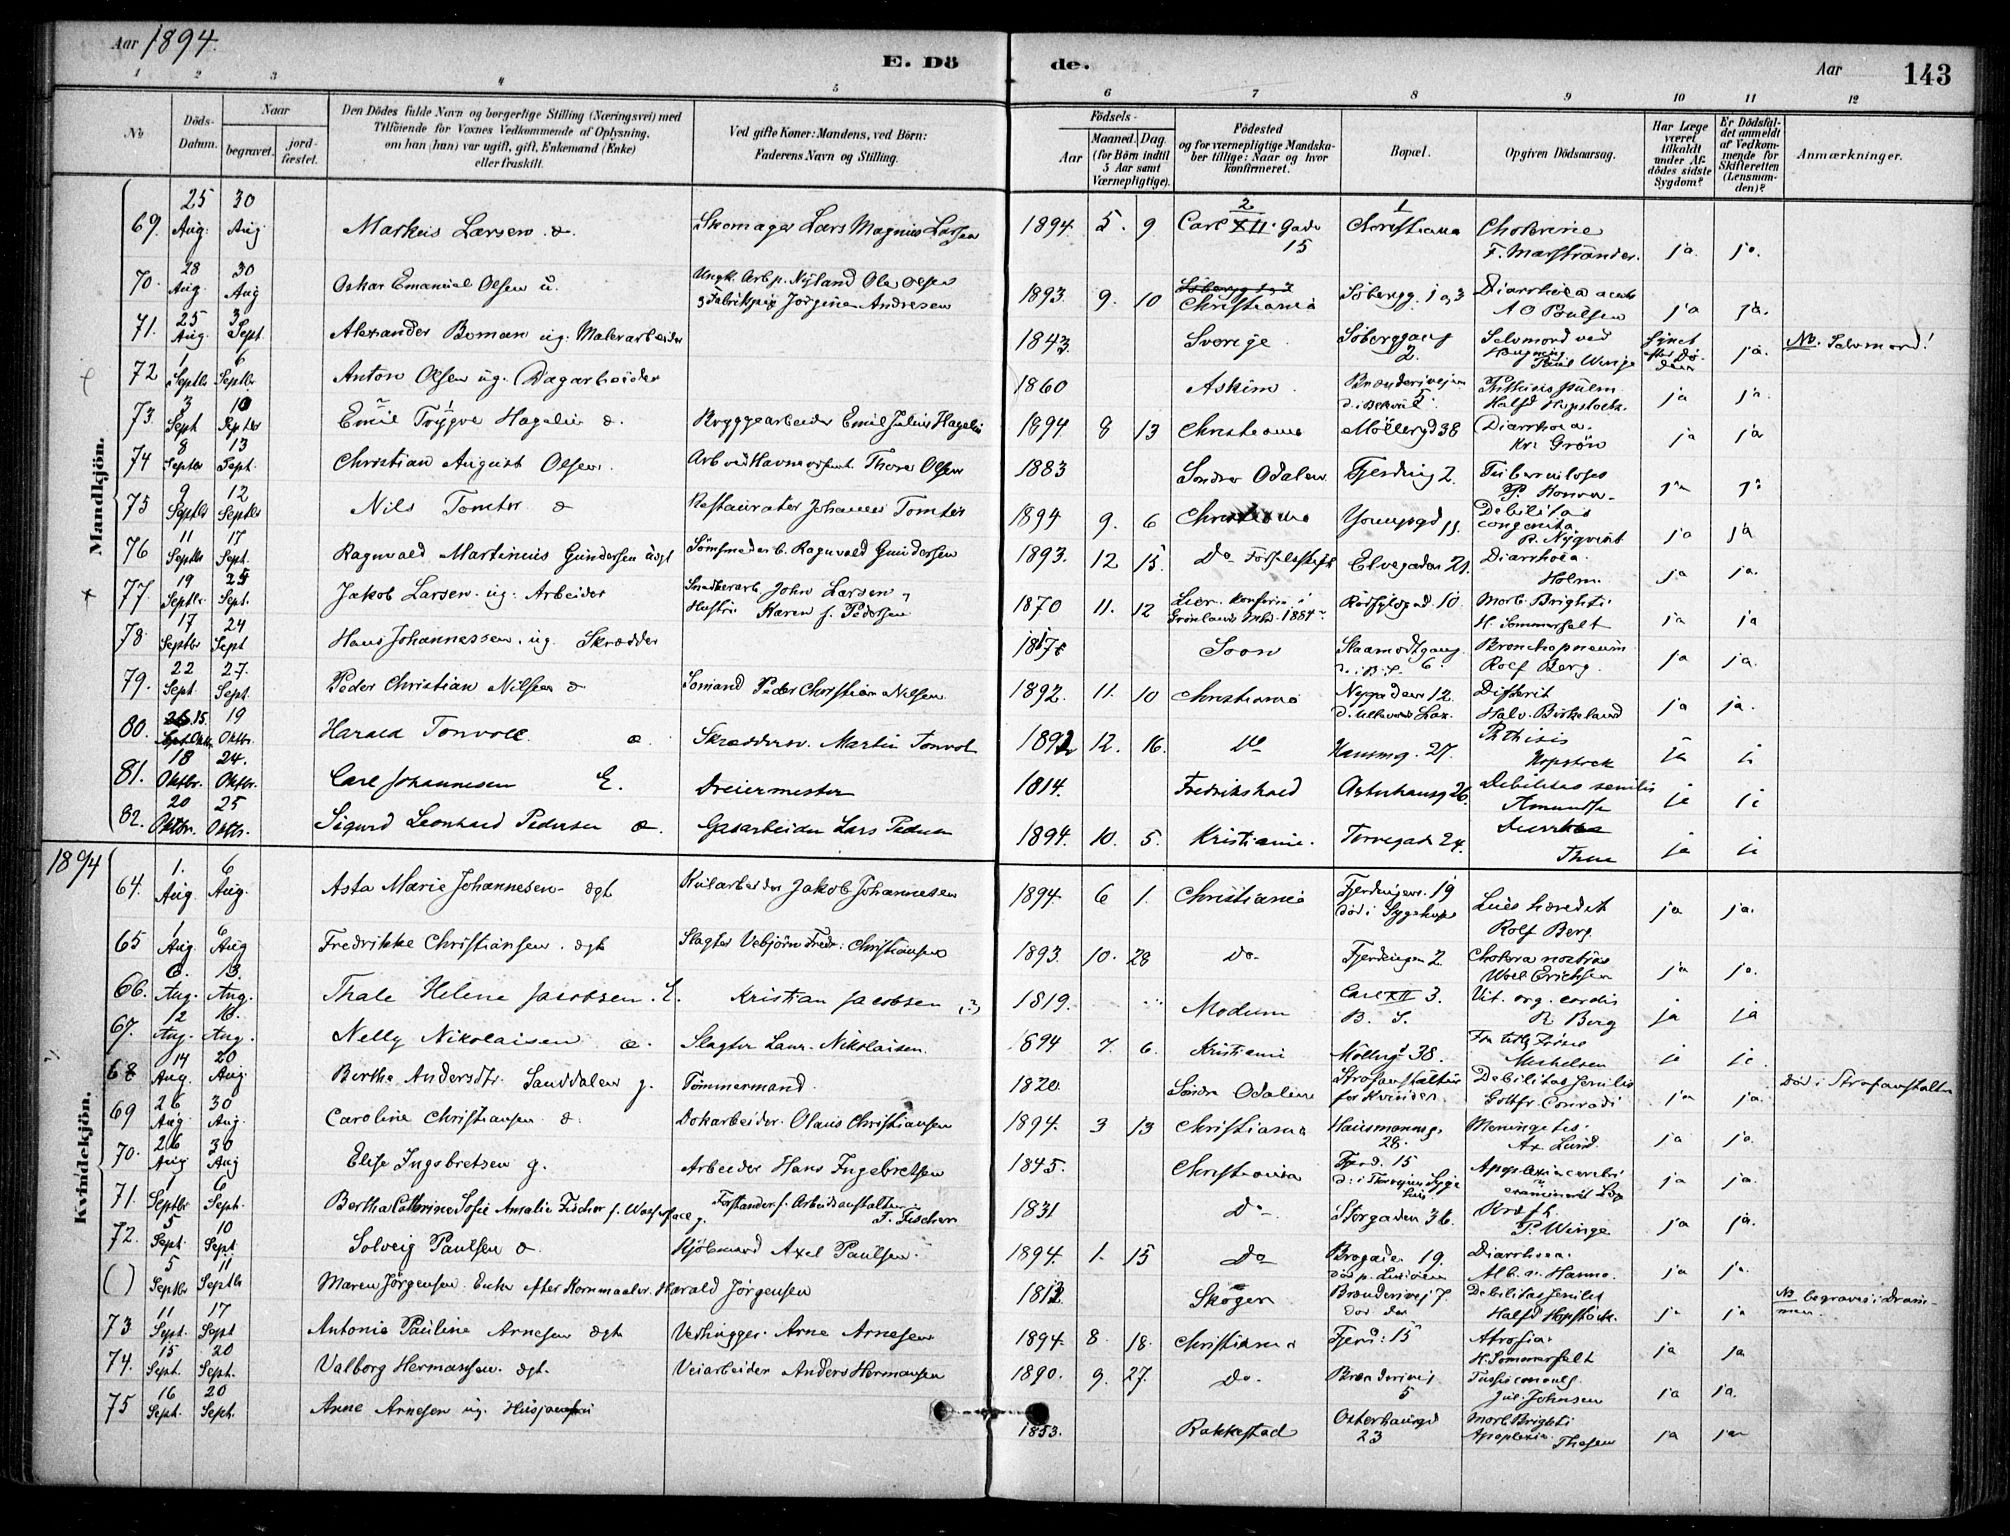 Aar 1894.
E. Dö
de.
Aar
143
1 2 3 4 5 6 7 8 9 10 11 12
No
Döds-Datum.
Naar
begravet.
jord-fæstet.
Den Dödes fulde Navn og borgerlige Stilling (Næringsvei) med
Tilföiende for Voxnes Vedkommende af Oplysning,
om han (hun) var ugift, gift, Enkemand (Enke)
eller fraskilt.
Ved gifte Koner: Mandens, ved Börn:
Faderens Navn og Stilling.
Födsels-
Aar
Maaned.
Dag.
(for Börn indtil
5 Aar samt
Værnepligtige).
Födested
og for værnepligtige Mandska-
ber tillige: Naar og hvor
konfirmeret.
Bopæl.
Opgiven Dödsaarsag.
Har Læge
været
tilkaldt
under Af-
dödes sidste
Sygdom?
Er Dödsfal-
det anmeldt
af Vedkom-
mende for
Skifteretten
(Lensman-
den)?
Anmærkninger.
Mandkjön.
69. 25 Aug. 30 Aug Markus Larsen. d. Skomager Lars Magnus Larsen 1894. 5. 9 Carl XII. Gade 15 Christiania Cholerine F. Marstrander. ja. ja.
70. 28 Aug. 30 Aug Oskar Emanuel Olsen u. Ungk. Arb. p. Nyland Ole Olsen g Fabrikpige Jörgine Andresen 1893. 9. 10 Christiania Söbergg. 1 a 3 Diarrhoea acuta A O Poulsen ja ja.
71. 25 Aug. 3 Sept. Alexander Boman ug. Malerarbeider 1843. Sverige Söberggang 2. Selvmord ved Hængning Paul Winge Synet efter Döden ja. Nb. Selvmord!
72 1 Septbr 6 Septbr. Anton Olsen ug. Dagarbeider 1860 Askim Brænderiveien 5 Phthisis pulm. Halfd Hopstock. ja ja.
73. 3 Sept 10 Septbr Emil Trygve Hagelin d. Bryggearbeider Emil Julius Hagelin 1894 8 13 Christiania Möllergd 38 Diarrhoea. Kr. Grön ja ja
74 8 Septbr 13 Sept. Christian August Olsen. Arb ved Havnevæsent. Thore Olsen 1883 Söndre Odalen Fjerding 2. Tuberculoses ja ja
75 9 Septbr 12 Septbr Nils Tomter d Restauratör Johannes Tomter 1894 9. 6 Christiania Youngsgd 11. Debilitas congenita R. Nyqvist ja ja
76 11 Septbr 17 Sept. Ragnvald Martinius Gundersen Sömsmedarb. Ragnvald Gundersen 1893. 12 15. Do Födselsstift Elvegaden 21. Diarrhoea. Holm. ja ja.
77 19 Septbr. 25 Sept. Jakob Larsen. ug. Arbeider Snedkerarb John Larsen Hustru Karen f. Pedersen 1870 11. 12 Lier. Konfirm i Grönland Rödfyldgd. 10. Morb. Brighti H. Sommerfelt ja ja
78. 17 Septbr 24 Sept Hans Johannessen. ug. Skrædder Soon Skaamodtgang 6. Bronchopneum Rolf Berg. ja ja.
79. 22 Sept. 27. Sept. Peder Christian Nilsen d Sömand Peder Christian Nilsen 1892. 11. 10 Christiania Nygaden 12. d. Ullevaal Laz. Difterit Halv. Birkeland ja ja.
80. 15. Oktbr. 19 Oktbr. Harald Tonvoll æ. Skræddersv. Martin Tonvol 1892 12. 16. Do Hausmg. 27. Phthisis Hopstock ja
81. 18 Oktbr. 24. Oktbr. Carl Johannesen E. Dreiermester 1814. Fredrikshald Osterhausg 26. Debilitas senilis Amundsen ja
82. 20 Oktbr. 25 Oktbr. Sigurd Leonhard Pedersen æ. Gasarbeider Lars Pedersen 1894. 10. 5. Kristiania. Torvegaden 24. Diarrhoea ja
1894
Kvindekjön.
64. 1. Aug. 6 Aug. Asta Marie Johannesen dgt Kularbeider Jakob Johannesen 1894. 6 1. Christiania Fjerdingen. 19 död i Sygehus Lues hæredit Rolf Berg. ja ja.
65 1 Aug. 6 Aug Fredrikke Christiansen. dgt Slagter Vebjörn Fredr. Christiansen 1893. 10. 28 Do. Fjerdingen 2. Cholera nostras Erichsen ja ja.
66. 6. Aug. 13. Aug. Thale Helene Jacobsen. E. Kristian Jacobsen (?) 1819. Modum Carl XII 3. B. S. Vit. org. cordis R. Berg ja ja
67. 12 Aug. 16. Aug. Nelly Nikolaisen æ. Slagter Laur. Nikolaisen. 894 7. 6. Kristiania Möllergd 38. Michelsen
68 14 Aug. 20 Aug Berthe Andersdtr. Sanddalen g. Tömmermand. 1820. Söndre Odalen Strafanstalten for Kvinder. Debilitas senilis Gottfr. Conradi ja ja. Död i Strafanstalten
69 26 Aug 30 Aug. Caroline Christiansen d. Dokarbeider. Olaus Christiansen 1894. 3 13 Christiania Hausmannsg. 28. Meningitis. Ax. Lund. ja ja.
70. 26 Aug 30 Aug Elise Ingebretsen g. Arbeider Hans Ingebretsen 1845. Christiania Fjerd. 15 Apoplexia cerebri ja ja.
71. 1 Septbr 6 Sept. Bertha Cathrine Sofie Amalie Fischer g. Forstander f. Arbeidsanstalten F. Fischer 1831 Do Storgaden 36. Kræft. P. Winge ja ja.
72. 5 Sept. 10 Sept. Solveig Paulsen d. Kjöbmand Axel Paulsen. 1894. 1. 15 Do Brogaden 19. Diarrhoea. Alb. v. Hanno. ja ja.
( ) 5 Septbr 11 Septbr Maren Jörgensen. Enke efter Kornmaaler. Harald Jörgensen 1812 Skoger Brænderivej 7. Debilitas senilis Halfd Hopstock. ja ja Nb begraves i Drammen.
73 11 Sept. 17 Sept Antonie Pauline Arnesen dgt Vedhugger. Arne Arnesen 1894. 8. 18. Christiania Fjerd: 15 Atrofia. H. Sommerfelt ja ja
74. 15 Sept. 20 Sept. Valborg Hermansen. dgt. Veiarbeider Anders Hermansen 1890. 9. 27. Do. Brænderivej 5 Tussis convuls. Jul. Johnsen ja ja.
75 16 Sept. 20 Sept. Anne Arnesen ug. 1853. Rakkestad Osterhausgd 23 Morb. Brighti Apoplexia. ja ja